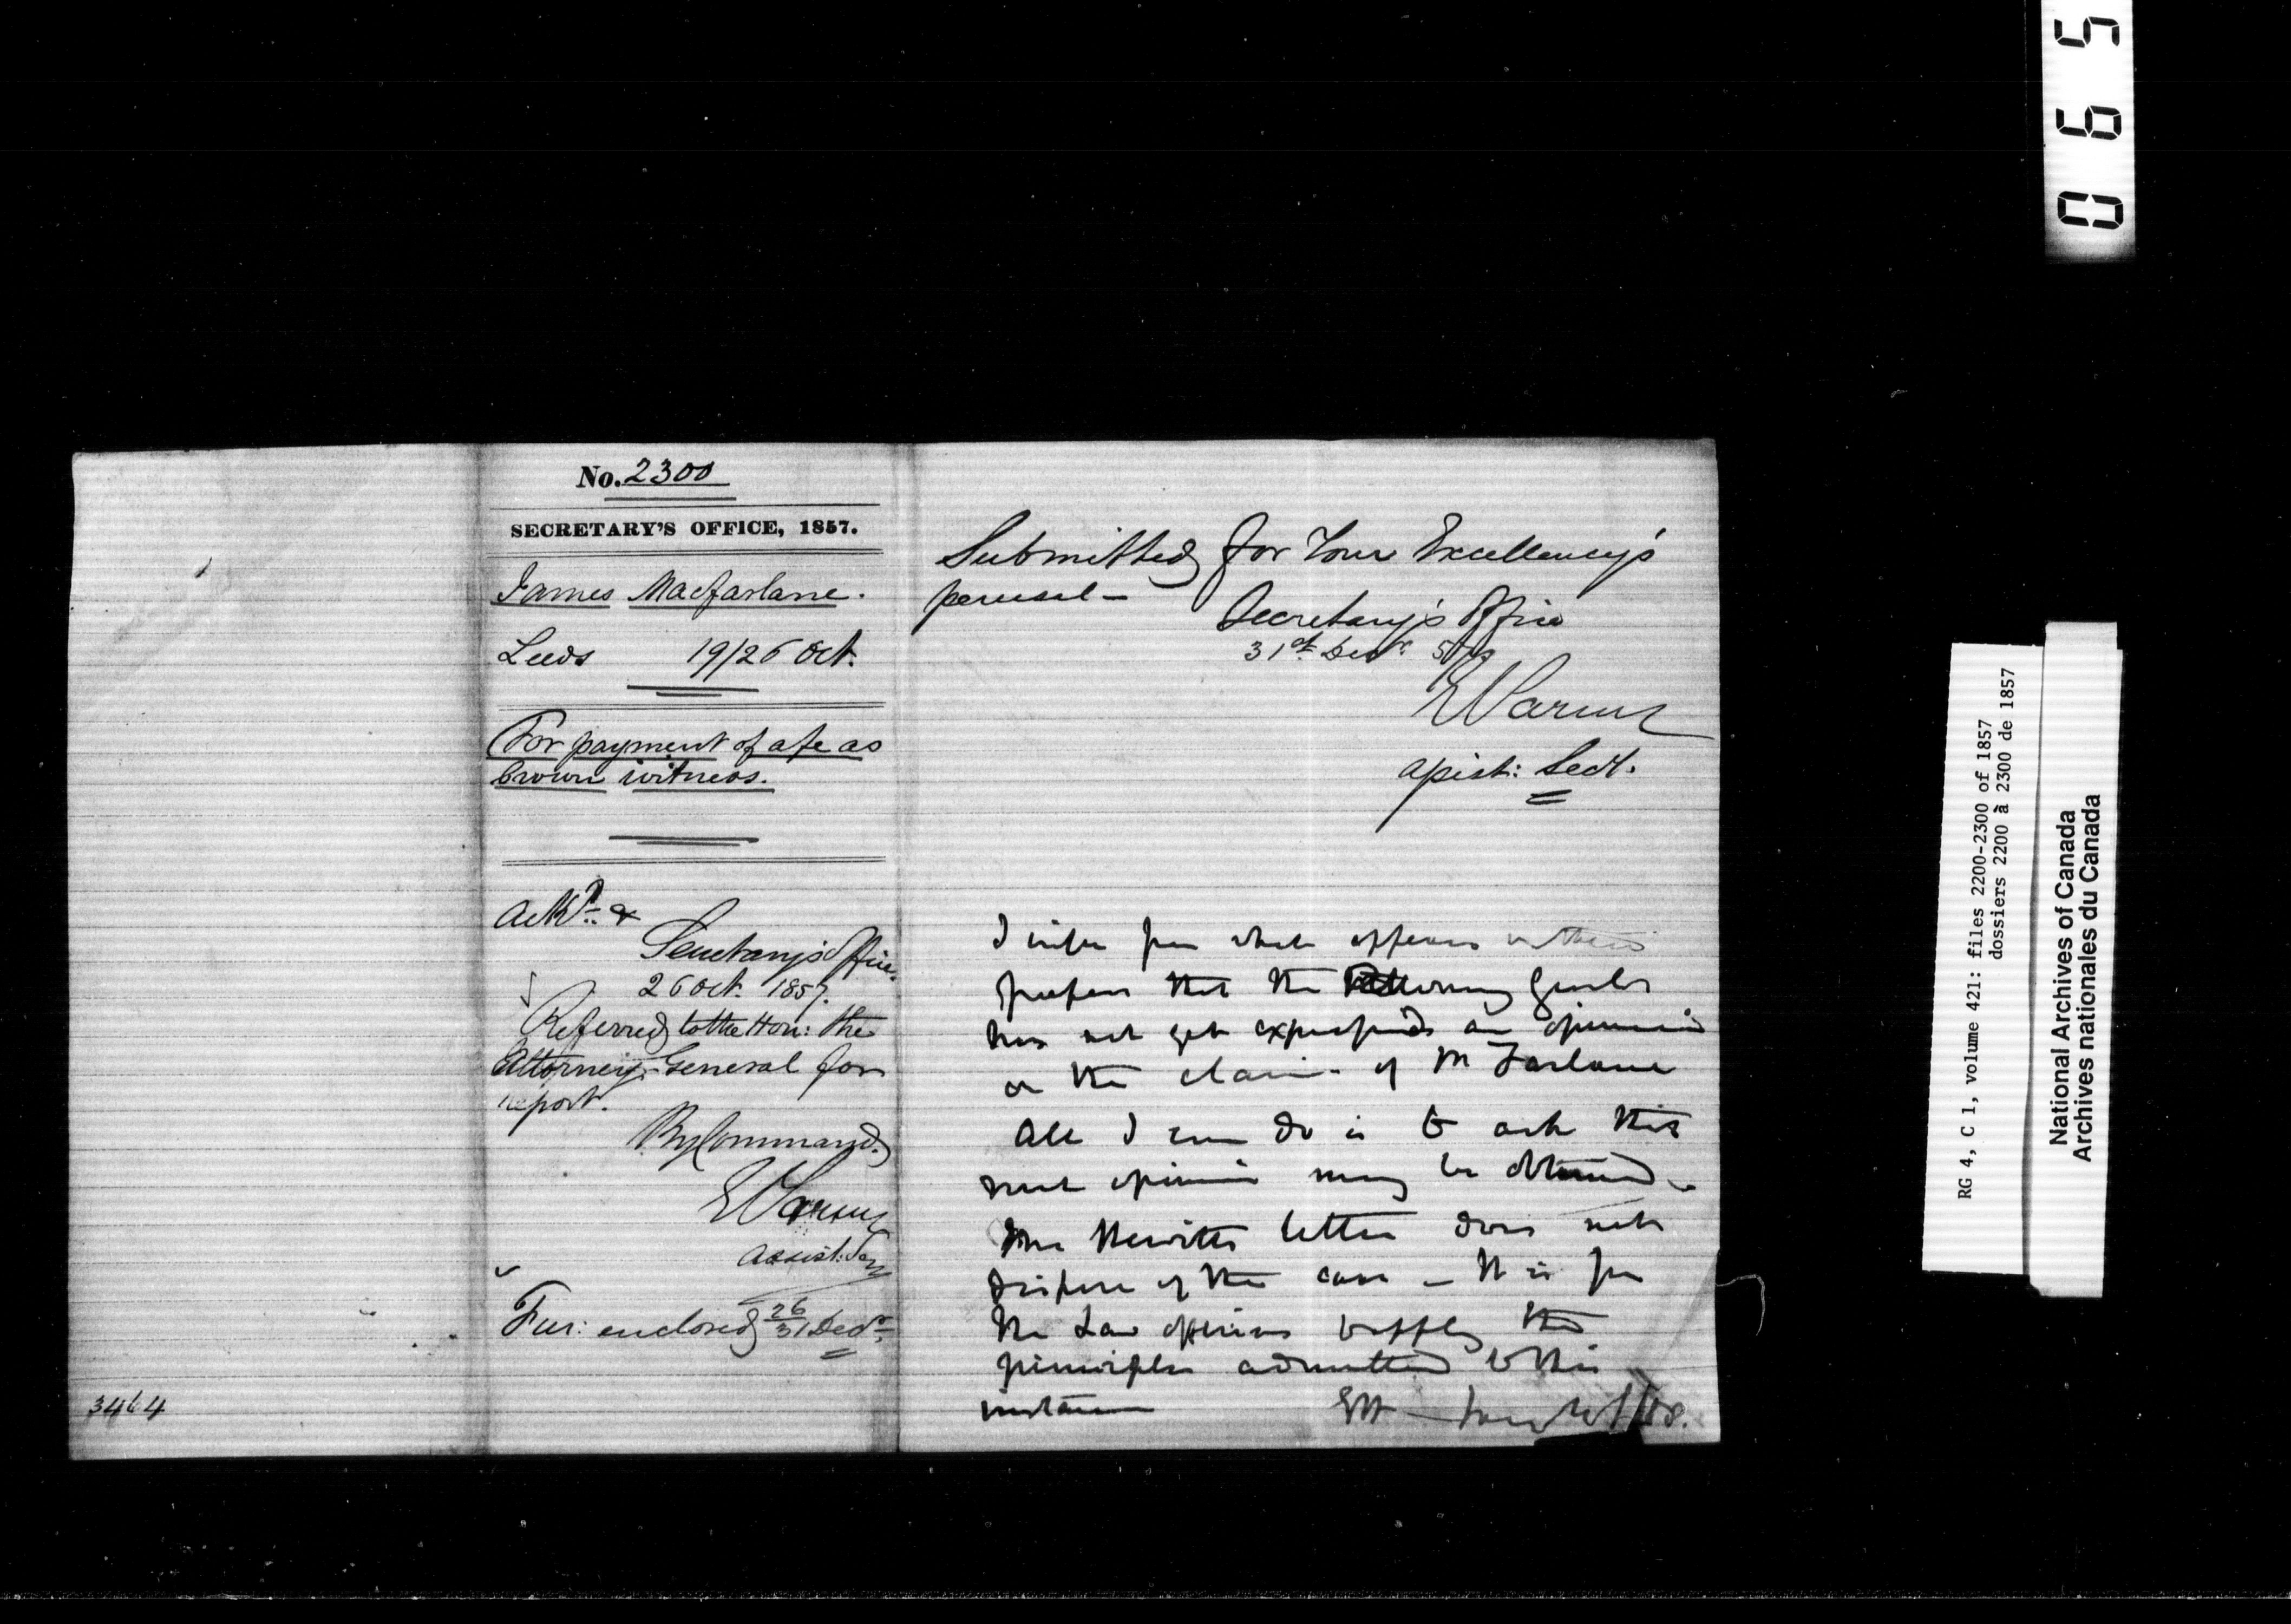 No. 2300
SECRETARY'S OFFICE, 1857.
James Macfarlane.
Leeds 19/26 Oct.
For payment of a fe as
Crown witness.
Ack.d &
Secretary's Office
26 Oct. 1857.
Referred to the Hon: the
Attorney-General for
report.
By Command.
E Parent
Assist: Sey
Fur: enclosed 26/31 Decr.
3464
Submitted for Your Excellency's
perusal —
Secretary's Office
31st Decr. 57
E Parent
Assist: Secy.
I infer from what appears in these
papers that the Attorney Genl
has not yet expressed an opinion
on the claim of McFarlane
All I can do is to ask that
such opinion may be obtained —
Mr Hewitts letter does not
dispose of the case — It is for
the Law officers to apply the
principles admitted to this
instance
EH
065
RG 4, C 1, volume 421: files 2200-2300 of 1857
dossiers 2200 à 2300 de 1857
National Archives of Canada
Archives nationales du Canada